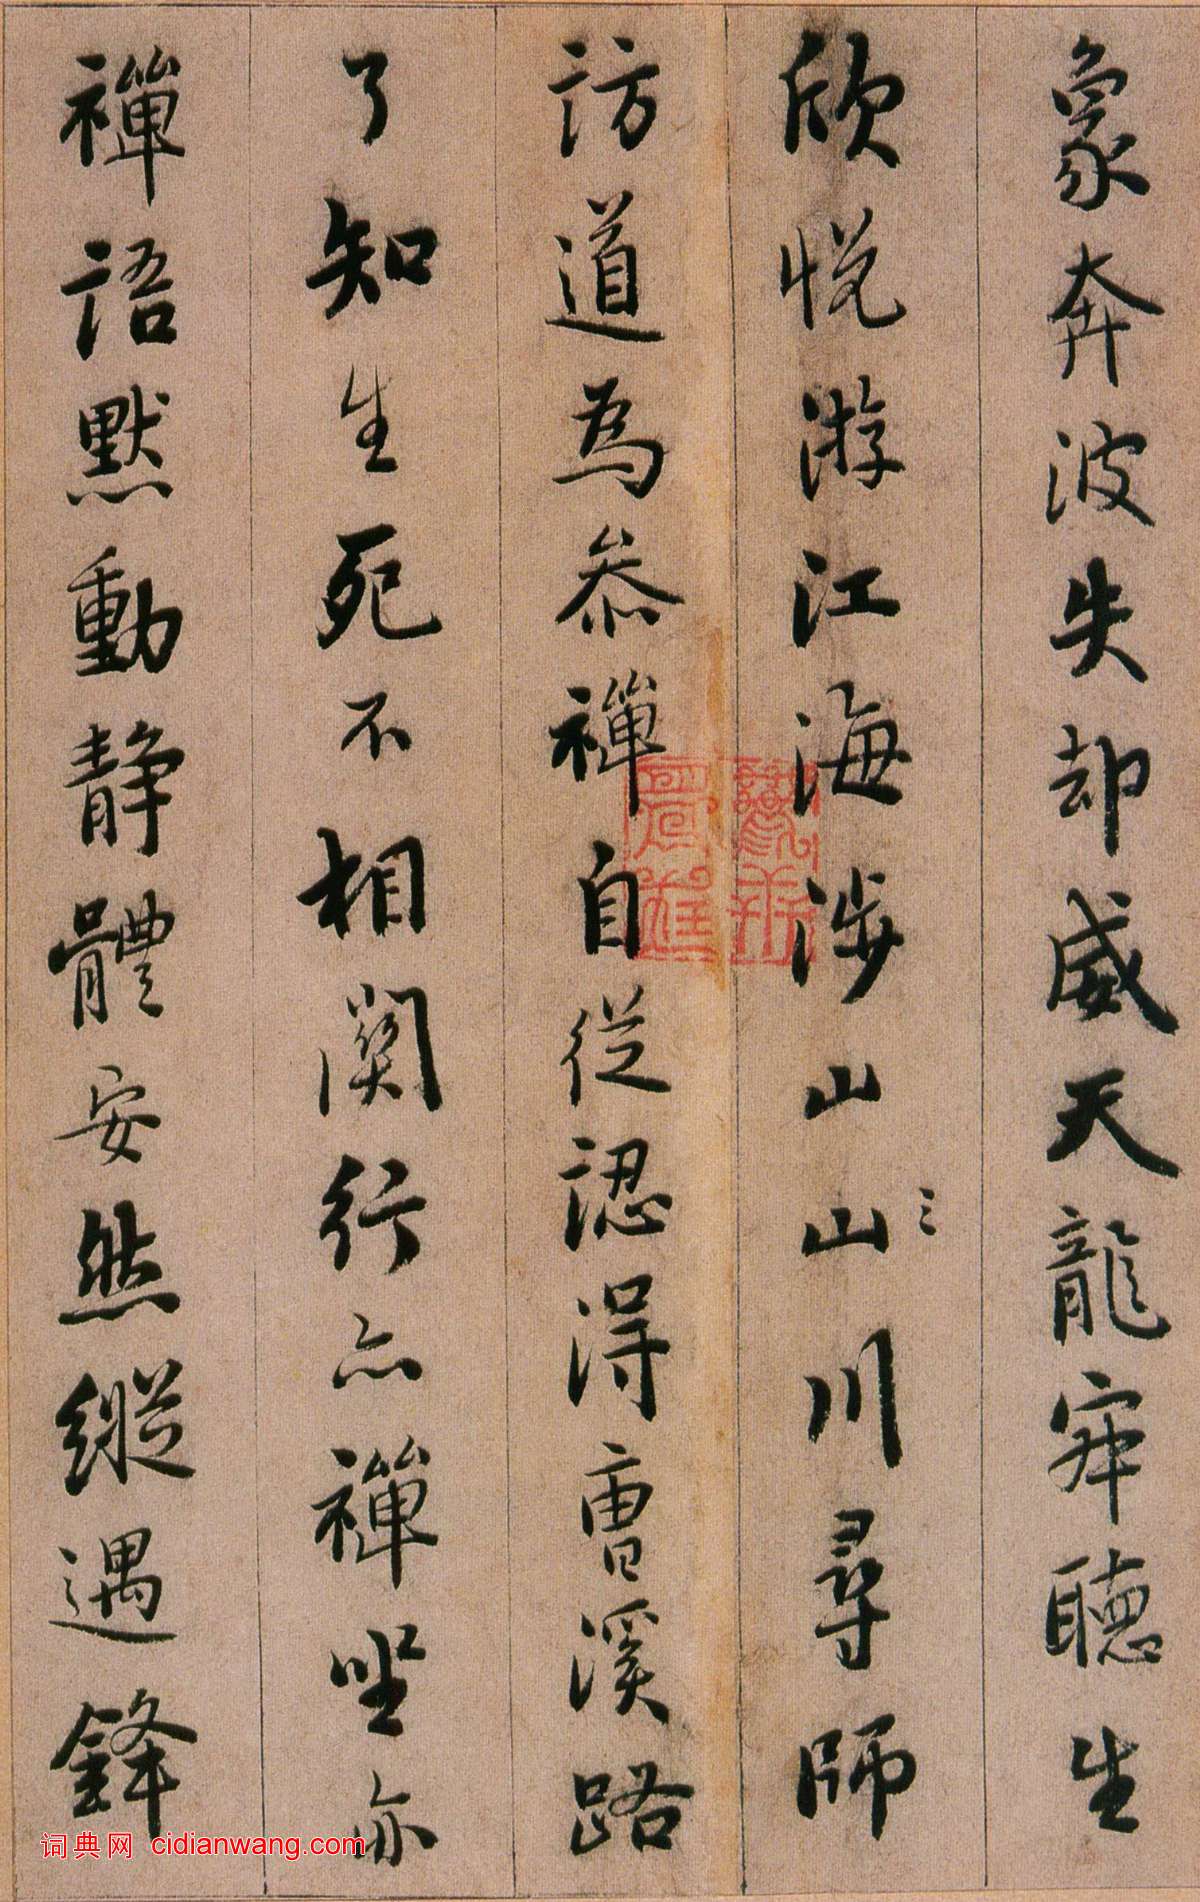 象奔波失却威天龍寂聽生
欣悅游江海涉山山川尋師
三
訪道為参禪自從認得曹溪路
了知生死不相關行亦禪坐亦
禪語默動静體安然縱遇鋒
词典网 cidianwang.com